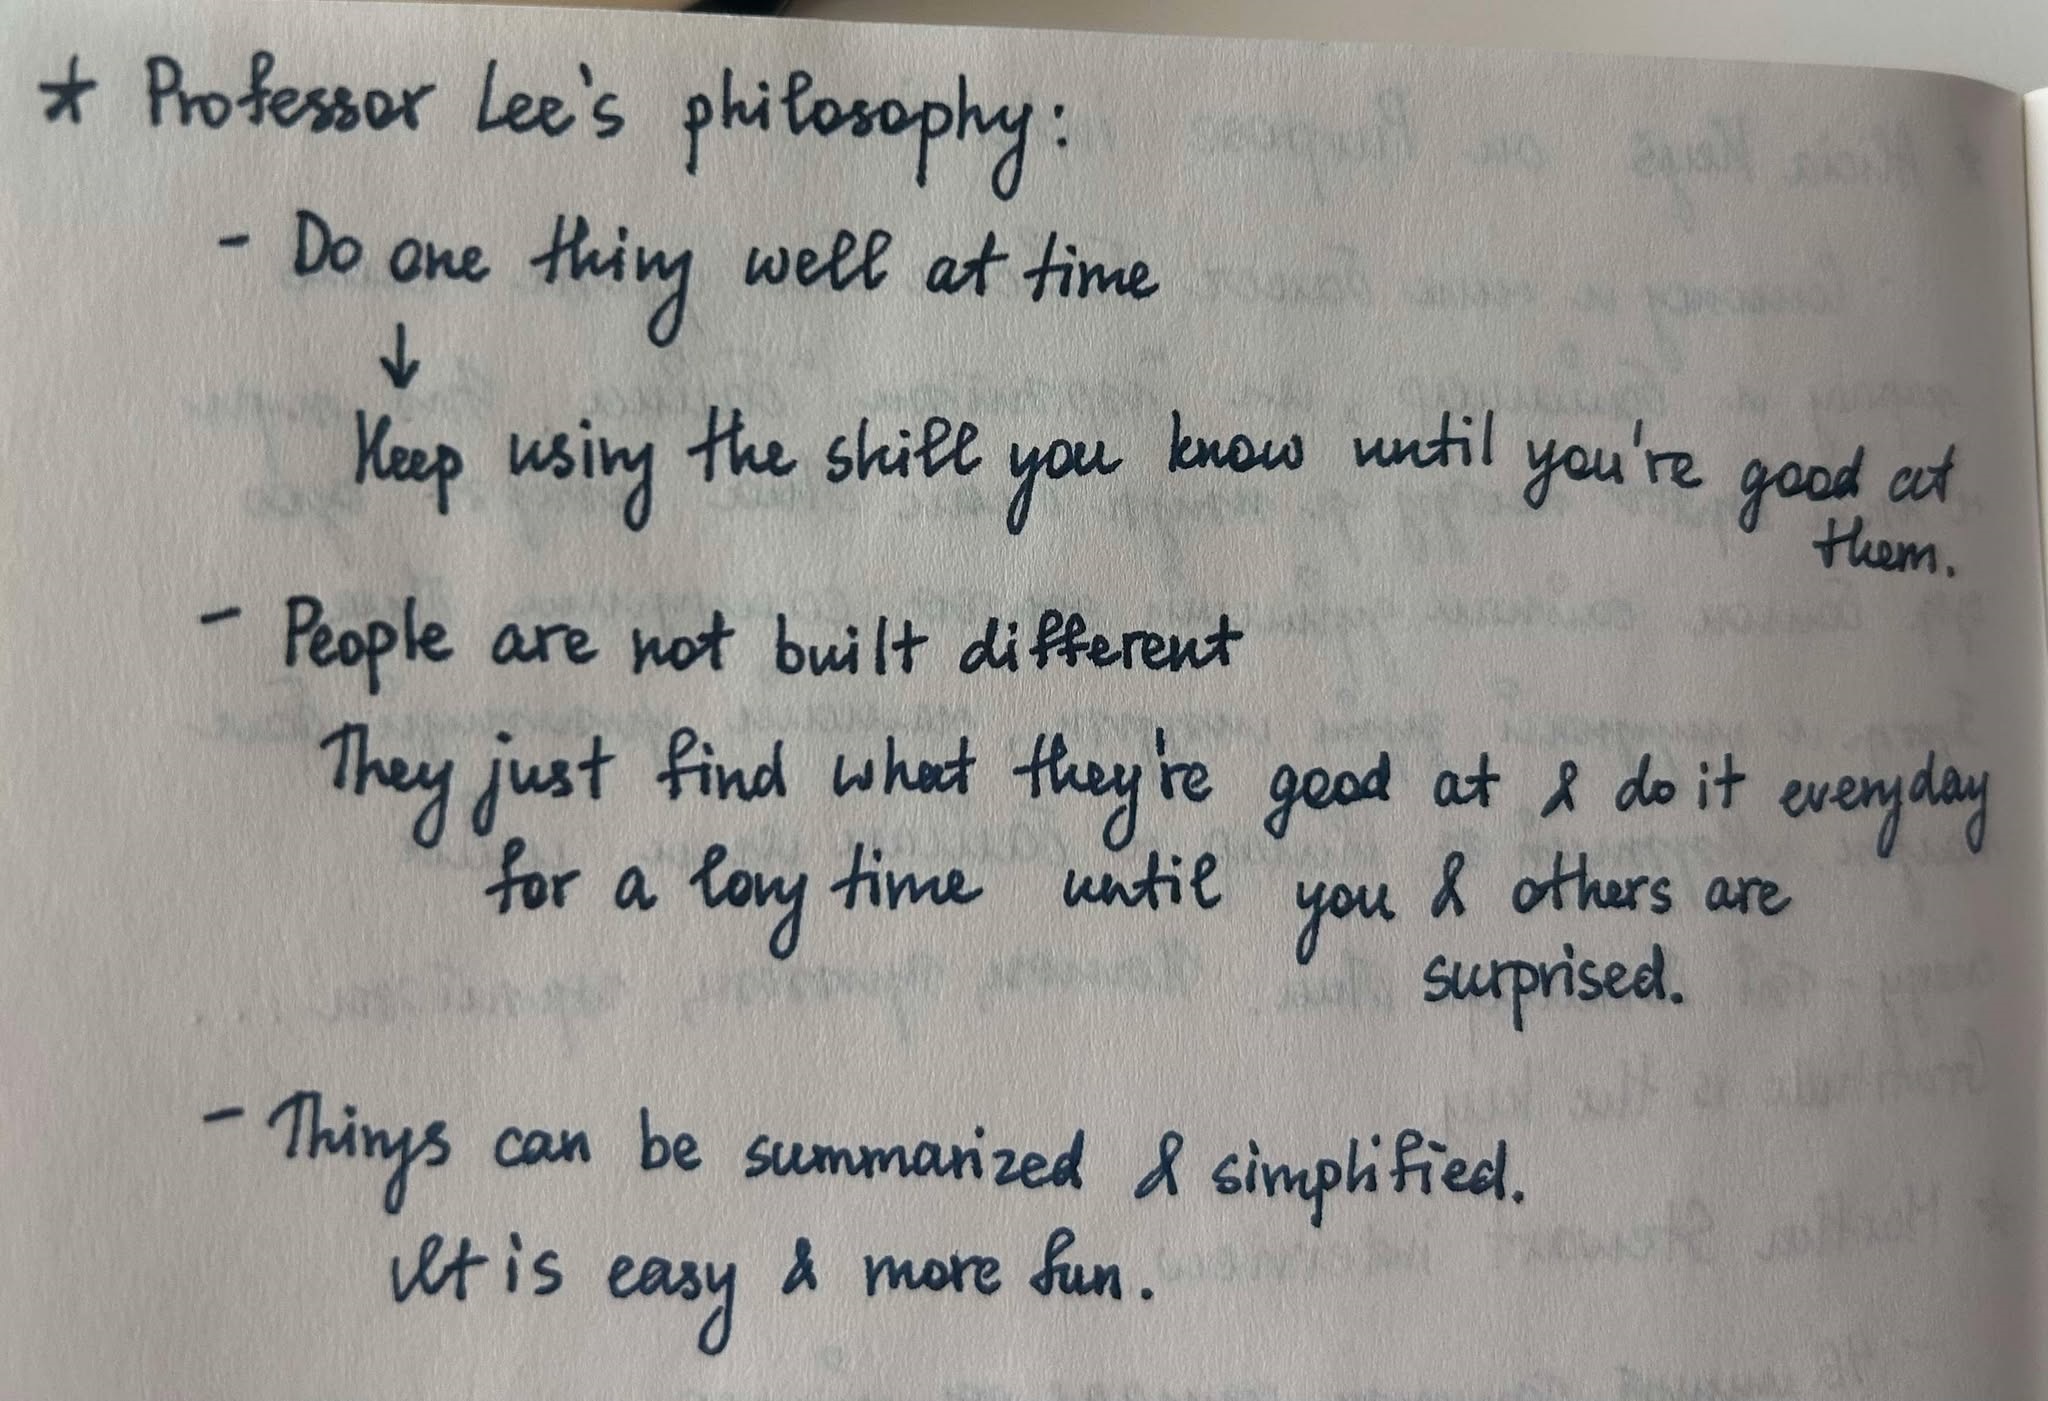 * Professor Lee's philosophy:
- Do one thing well at time
↓
Keep using the skill you know until you're good at
them.
- People are not built different
They just find what they're good at & do it everyday
for a long time until you & others are
surprised.
- Things can be summarized & simplified.
It is easy & more fun.